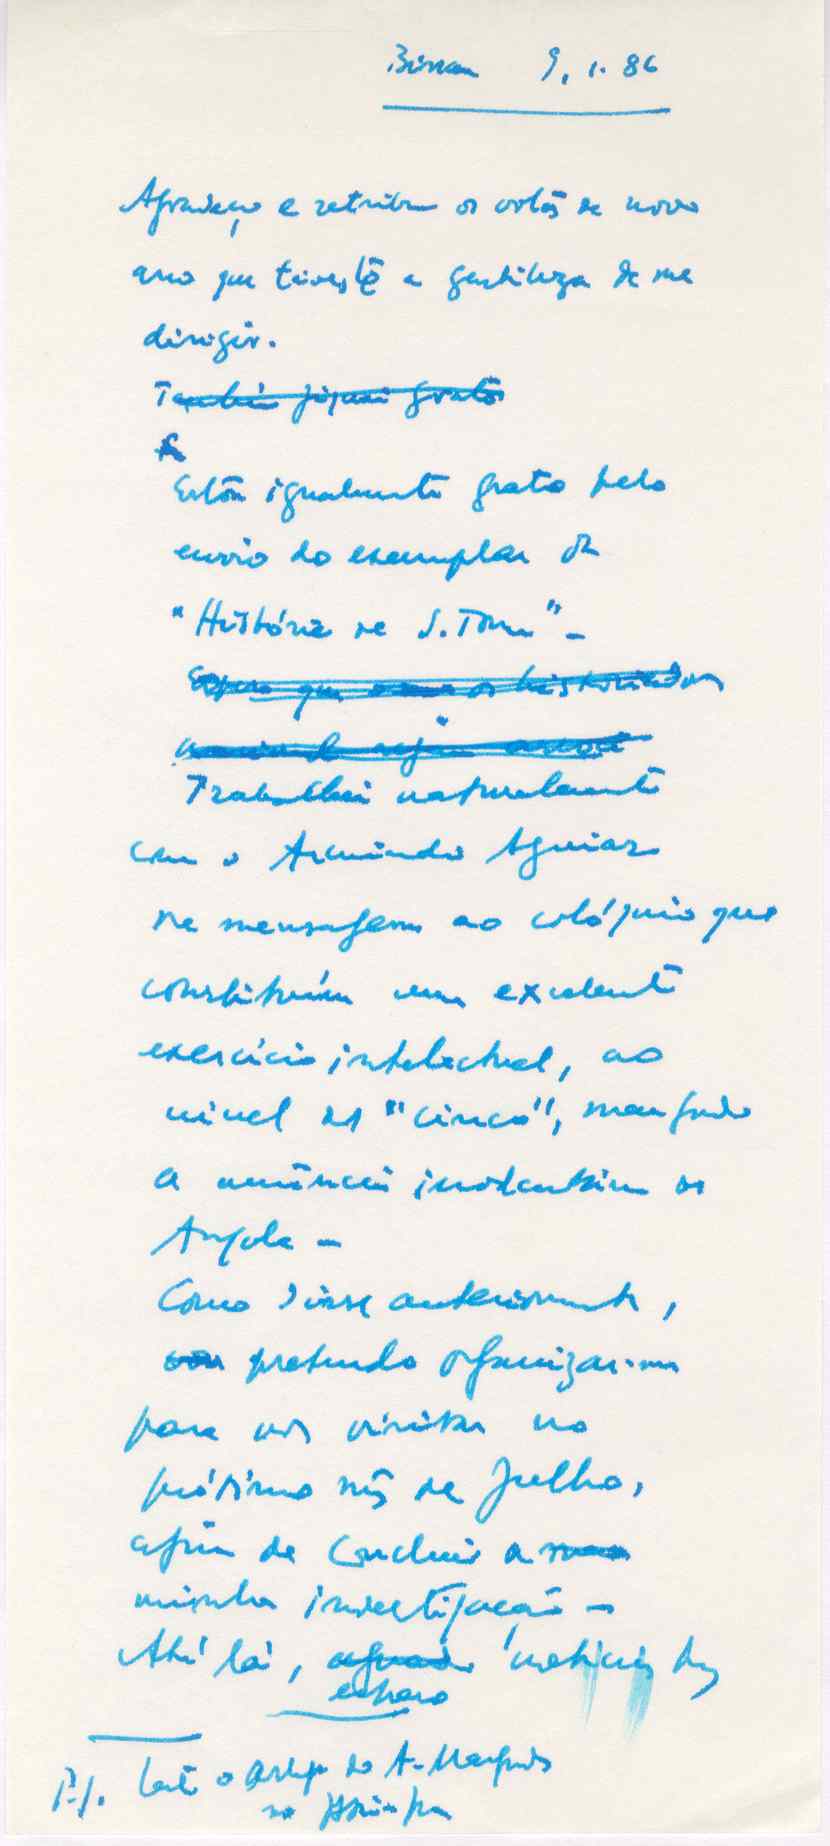 Bissau 9.1.86
Agradeço e retribuo os votos de novo
ano que tiveste a gentileza de me
dirigir.
Também fiquei grato
Estou igualmente grato pelo
envio do exemplar da
"História de S. Tomé" -
Espero que os historiadores
Trabalhei naturalmente
com o Armindo Aguiar
na mensagem ao colóquio que
constituiu um excelente
exercício intelectual, ao
nível dos "cinco", mau grado
a ausência de
Angola -
Como disse anteriormente,
vou pretendo organizar-me
para vos visitar no
próximo mês de Julho,
afim de concluir a
minha investigação -
Até lá, aguardo notícias tuas
espero
P.S. Leste o artigo do A. Marques